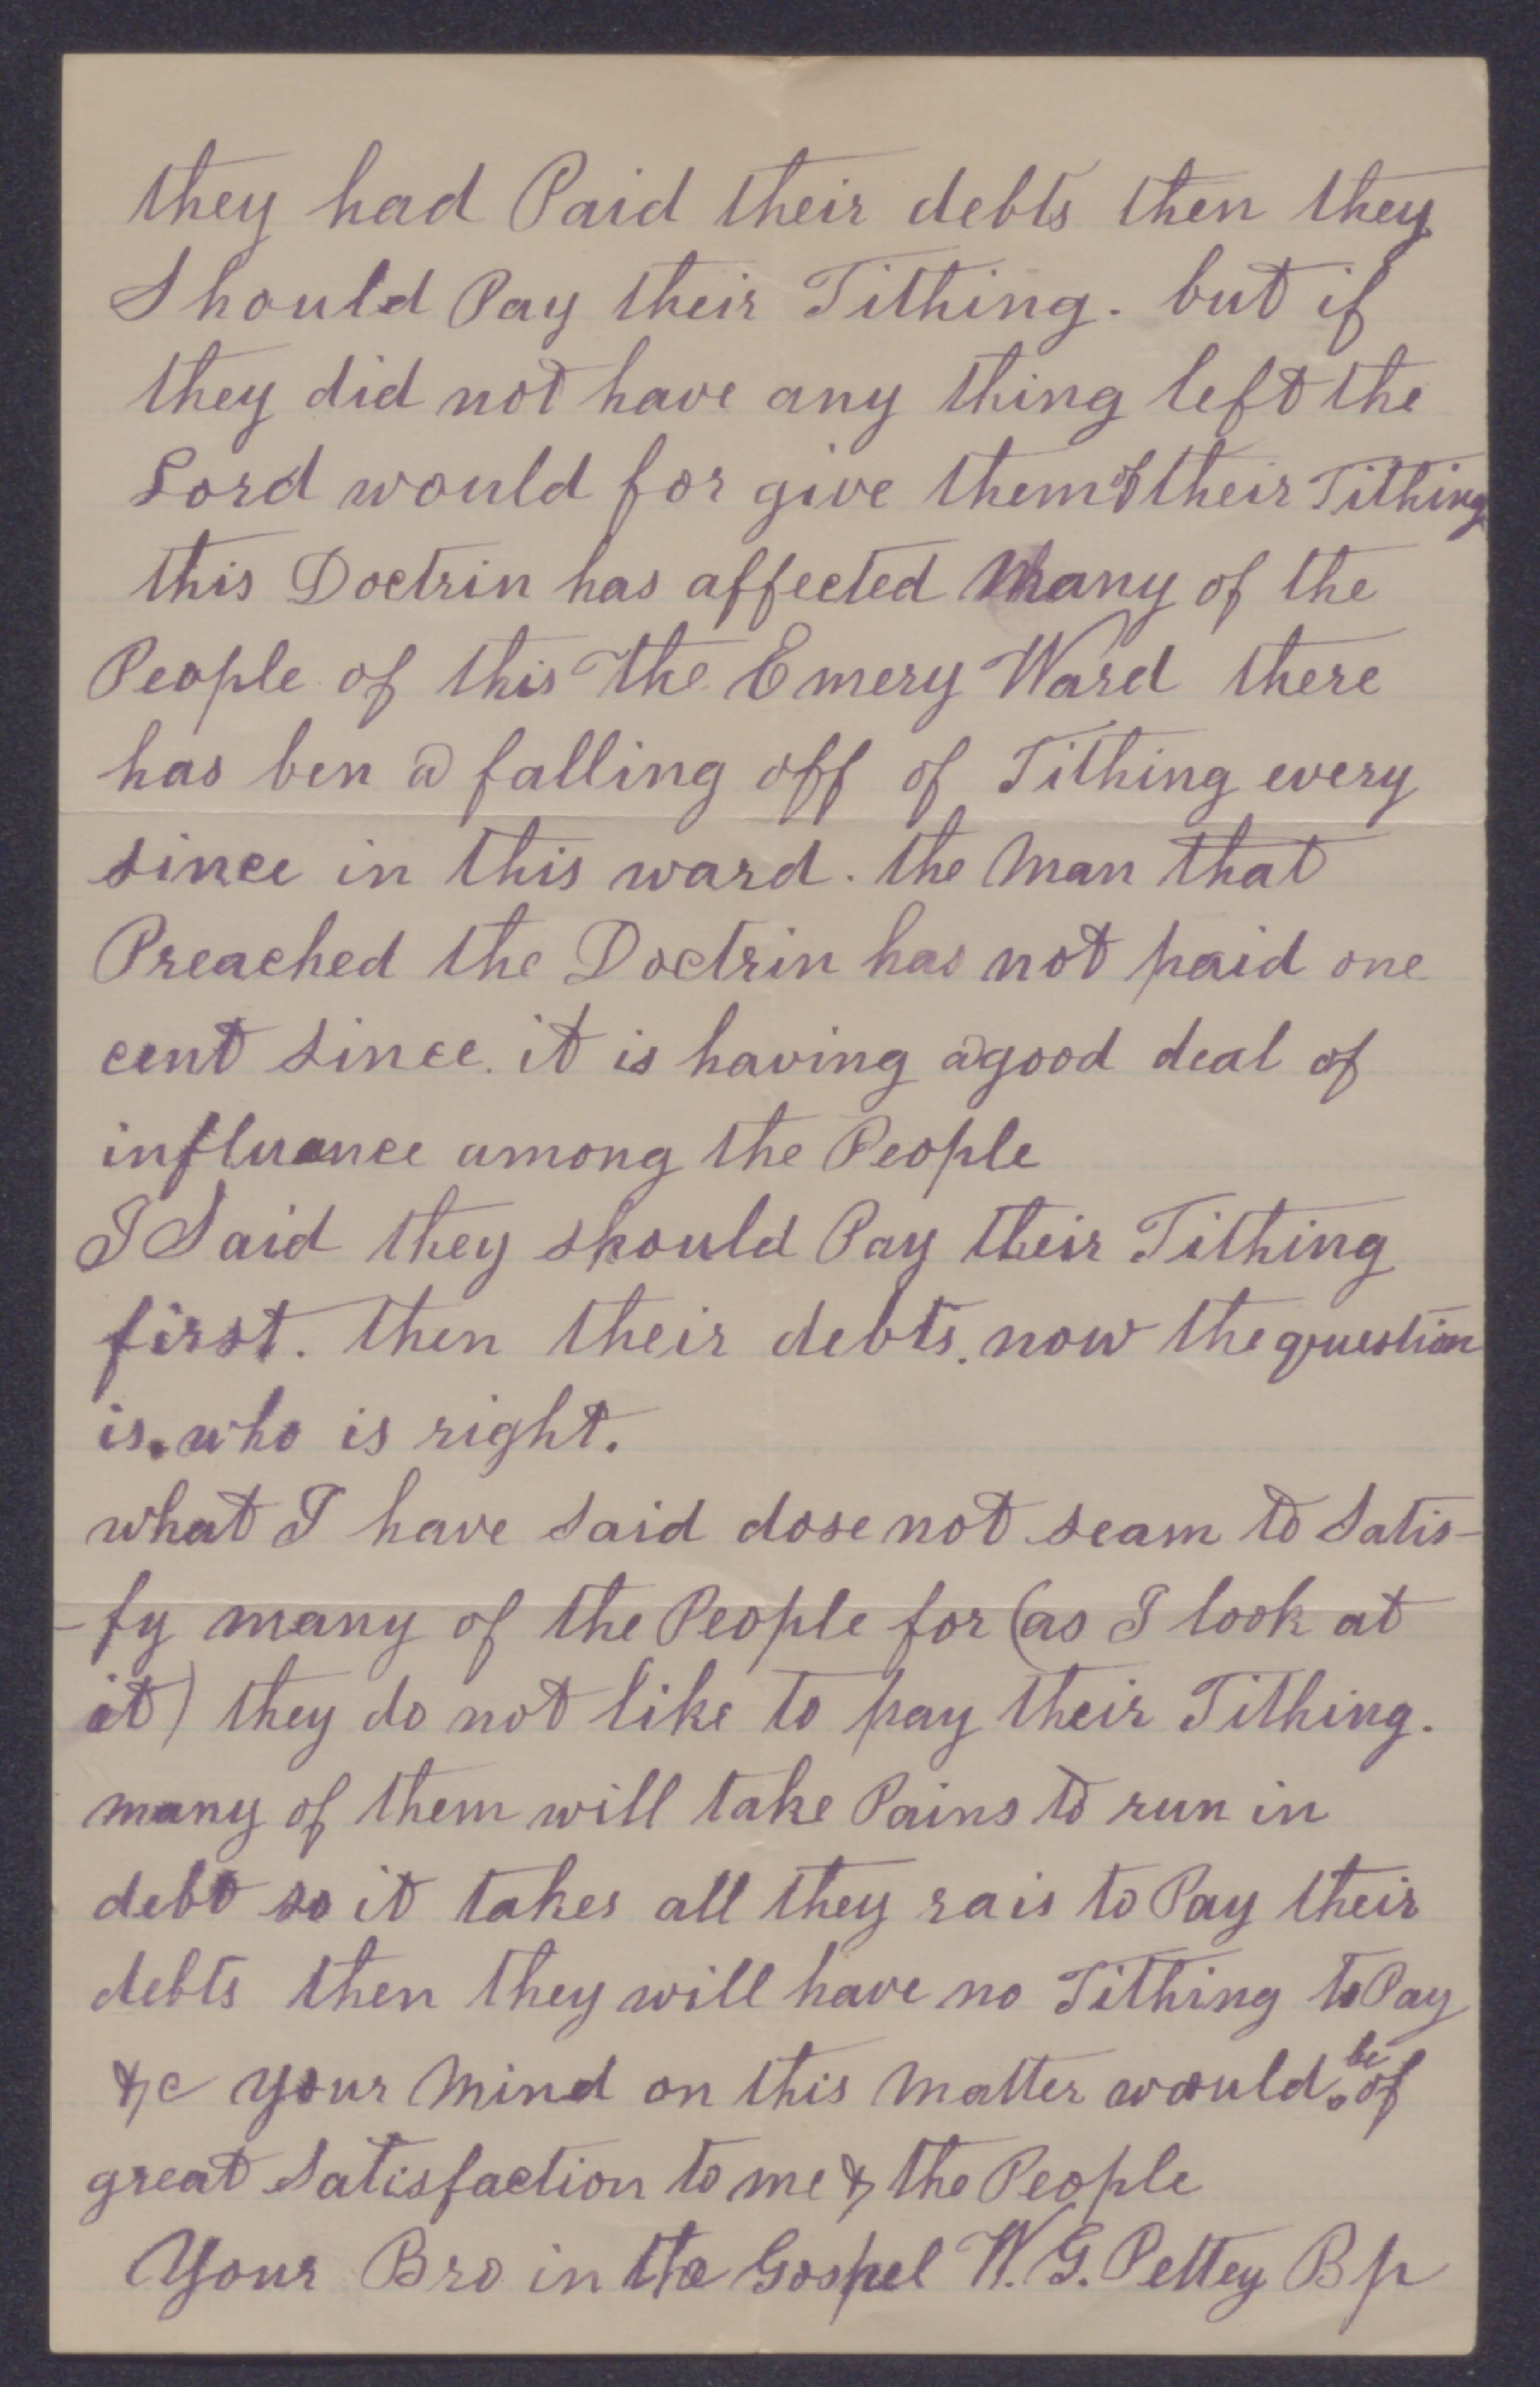 they had Paid their debts then they
Should Pay their Tithing. but if
they did not have any thing left the
Lord would for give them of their Tithing
this Doctrin has affected Many of the
People of this The Emery Ward there
has ben a falling off of Tithing every
since in this ward. the Man that
Preached the Doctrin has not paid one
cent since. it is having a good deal of
influance among the People
I Said they should Pay their Tithing
first. then their debts. now the question
is. who is right.
what I have said dose not seam to Satis-
-fy many of the People for (as I look at
it) they do not like to pay their Tithing.
many of them will take Pains to run in
debt so it takes all they rais to Pay their
debts then they will have no Tithing to Pay
&c your Mind on this Matter would be of
great Satisfaction to me & the People
Your Bro in the Gospel W. G. Pettey Bp